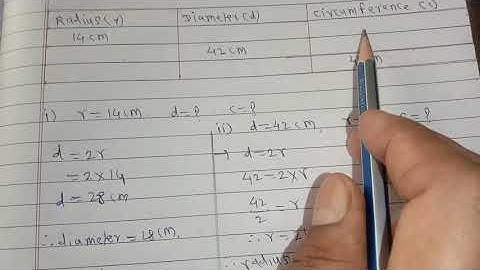 Radius(r) Diameter(d) Circumference (c)
14cm
42cm
i) r=14cm, d=? c=?
ii) d=42cm, =?
d=2r
=2×14
d=28cm
∴diameter=28cm.
→ d=2r
42=2×r
42/2=r
∴r=2
∴radius=